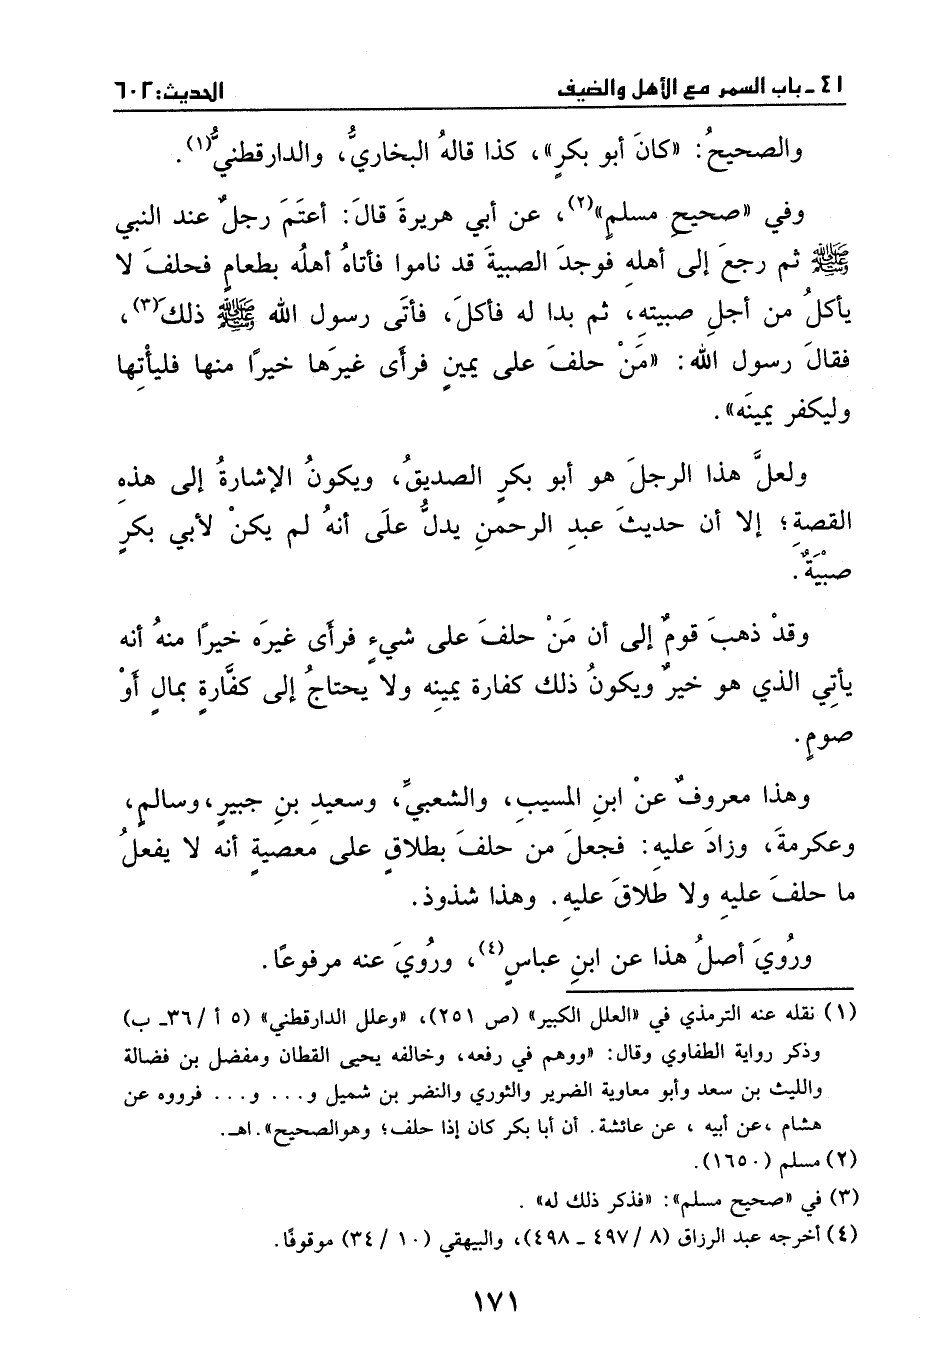 ٤١ - باب السمر مع الأهل والضيف
الحديث: ٦٠٢
والصحيحُ: «كانَ أبو بكرٍ»، كذا قالهُ البخاريُّ، والدارقطنيُّ(١).
وفي «صحيحِ مسلمٍ»(٢)، عن أبي هريرةَ قالَ: أعتَمَ رجلٌ عند النبي
ﷺ ثم رجعَ إلى أهلهِ فوجدَ الصبيةَ قد ناموا فأتاهُ أهلُه بطعامٍ فحلفَ لا
يأكلُ من أجلِ صبيتهِ، ثم بدا له فأكلَ، فأتَى رسول الله ﷺ ذلكَ(٣)،
فقالَ رسول الله: «مَنْ حلفَ على يمينٍ فرأى غيرَها خيرًا منها فليأْتِها
وليكفر يمينَه».
ولعلَّ هذا الرجلَ هو أبو بكرٍ الصديقُ، ويكونُ الإشارةُ إلى هذهِ
القصةِ؛ إلا أن حديثَ عبدِ الرحمنِ يدلُّ علَى أنهُ لم يكنْ لأبي بكرٍ
صبْيَةٌ.
وقدْ ذهبَ قومٌ إلى أن مَنْ حلفَ على شيءٍ فرأى غيرَه خيرًا منهُ أنه
يأتِي الذي هو خيرٌ ويكونُ ذلك كفارة يمينِه ولا يحتاجُ إلى كفَّارةٍ بمالٍ أوْ
صومٍ.
وهذا معروفٌ عنْ ابنِ المسيبِ، والشعبيِّ، وسعيدِ بنِ جبيرٍ، وسالمٍ،
وعكرمةَ، وزادَ عليهِ: فجعلَ من حلفَ بطلاقٍ على معصيةٍ أنه لا يفعلُ
ما حلفَ عليهِ ولا طلاقَ عليهِ. وهذا شذوذ.
ورُويَ أصلُ هذا عن ابنِ عباسٍ(٤)، ورُويَ عنه مرفوعًا.
(١) نقله عنه الترمذي في «العلل الكبير» (ص ٢٥١)، «وعلل الدارقطني» (٥ أ / ٣٦ـ ب)
وذكر رواية الطفاوي وقال: «ووهم في رفعه، وخالفه يحيى القطان ومفضل بن فضالة
والليث بن سعد وأبو معاوية الضرير والثوري والنضر بن شميل و... و... فرووه عن
هشام ،عن أبيه ، عن عائشة. أن أبا بكر كان إذا حلف؛ وهوالصحيح».اهـ.
(٢) مسلم (١٦٥٠).
(٣) في «صحيح مسلم»: «فذكر ذلك له» .
(٤) أخرجه عبد الرزاق (٨ / ٤٩٧ ـ ٤٩٨)، والبيهقي (١٠ / ٣٤) موقوفًا.
١٧١